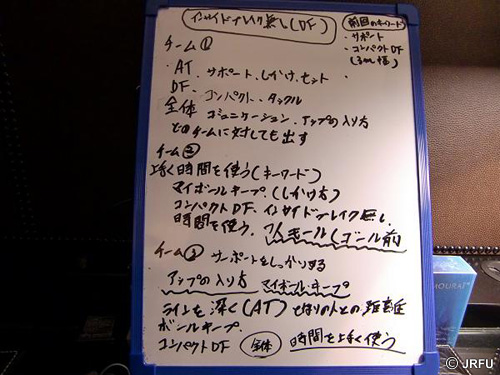 インサイドブレイク無し(DF)
前回のキーワード
・サポート
・コンパクトDF
チーム①
・AT. サポート、しかけ、セット
DF. コンパクト、タックル
全体 コミュニケーション、アップの入り方
どのチームに対しても出す
チーム②
上手く時間を使う(キーワード)
マイボールキープ.(しかけ方)
コンパクトDF、インサイドブレイク無し.
時間を使う. (ゴール前
チーム③ サポートをしっかりする
アップの入り方 マイボールキープ
ラインを深く(AT) となりの人との距離
ボールキープ.
コンパクトDF 全体 時間を上手く使う
MOURAT
© JRFU